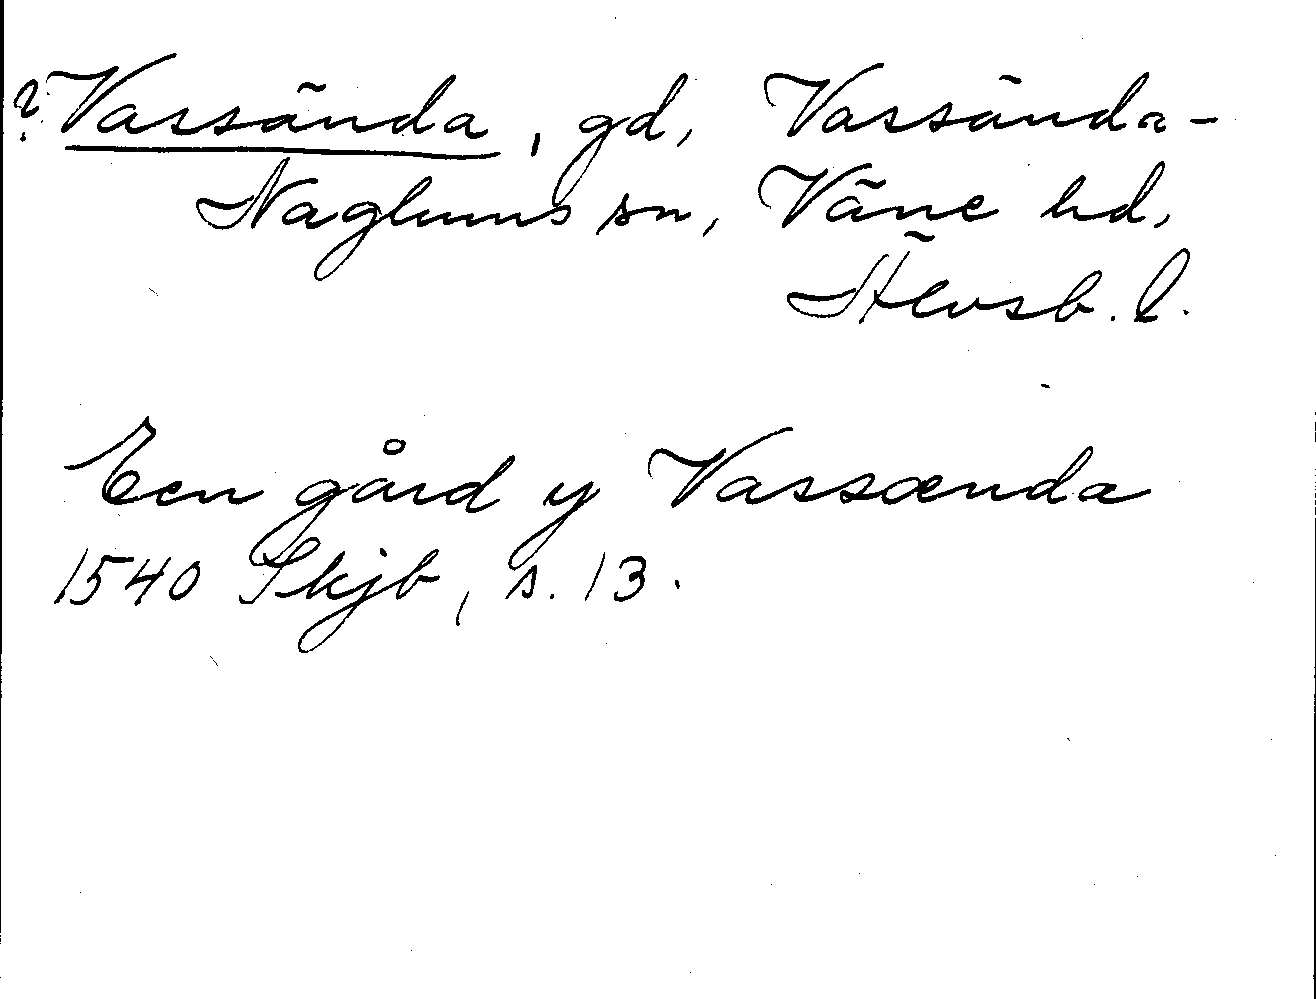 ? Vassända, gd, Vassända-
Naglums sn, Väne hd,
Älvsb. l.
Een gård y Vassænda
1540 Skjb, s. 13.